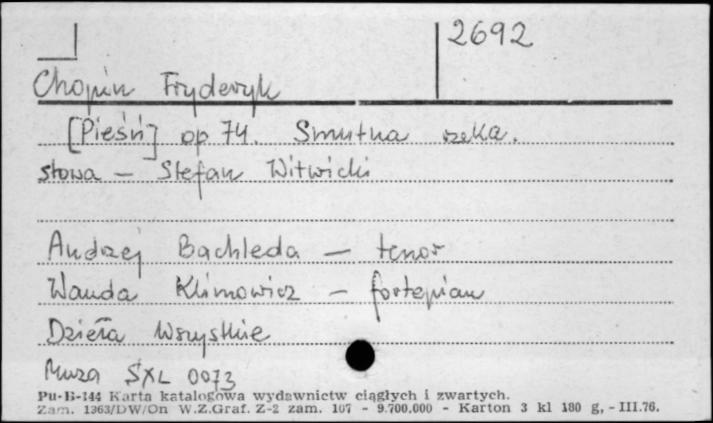 2692
Chopin Fryderyk
[Pieśń] op 74. Smutna rzeka.
słowa – Stefan Witwicki
Andrzej Bachleda – tenor
Wanda Klimowicz – fortepian
Dzieła Wszystkie
Muza SXL 0073
Pu-B-144 Karta katalogowa wydawnictw ciągłych i zwartych.
Zam. 1363/DW/On W.Z.Graf. Z-2 zam. 107 - 9.700.000 - Karton 3 kl 180 g, - III.76.